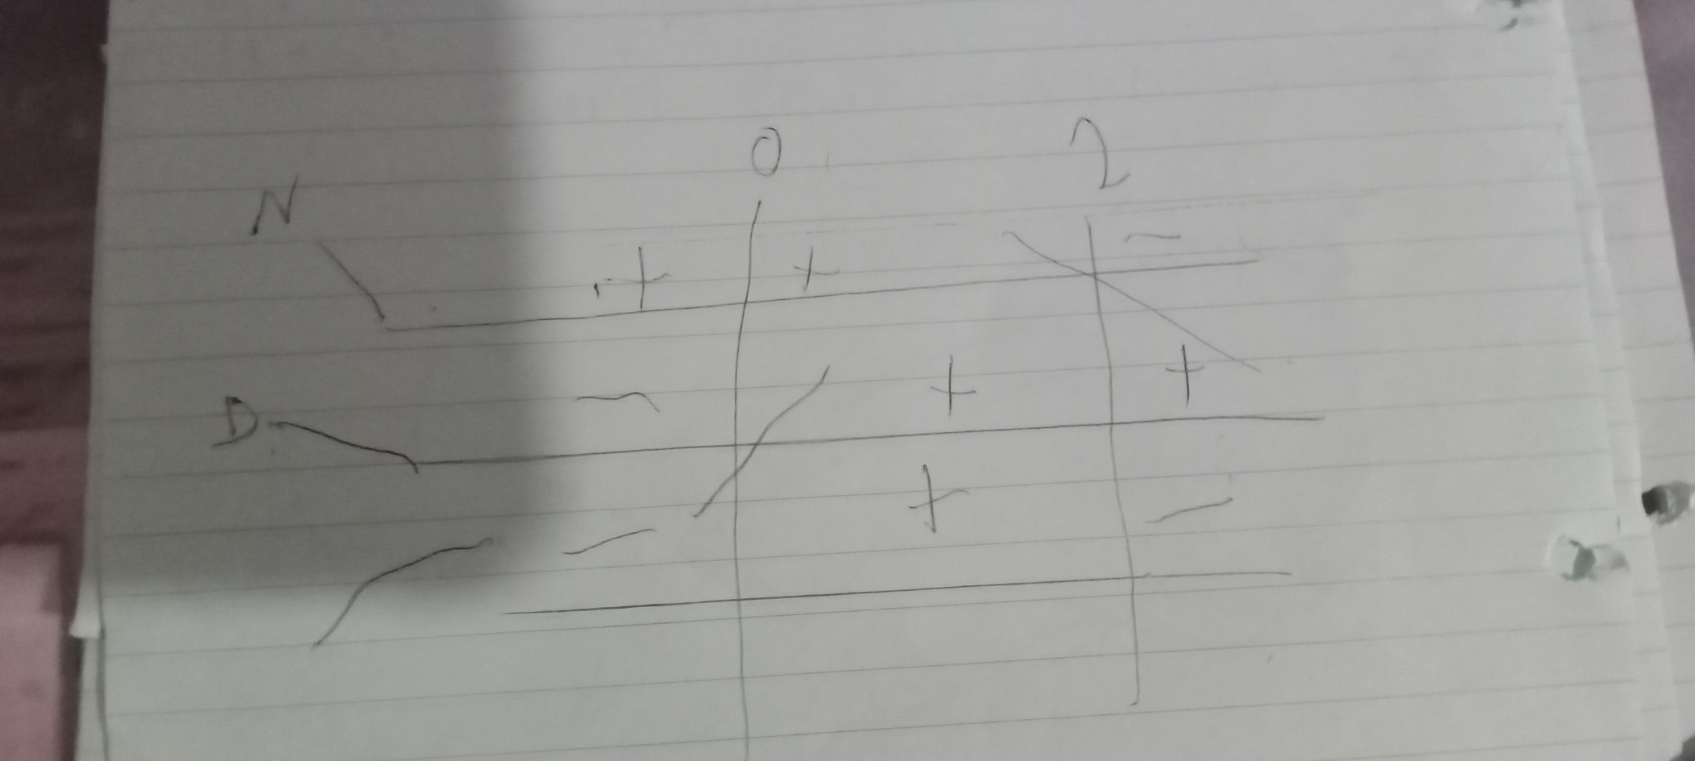 0 2
N + + -
D - + +
- + -